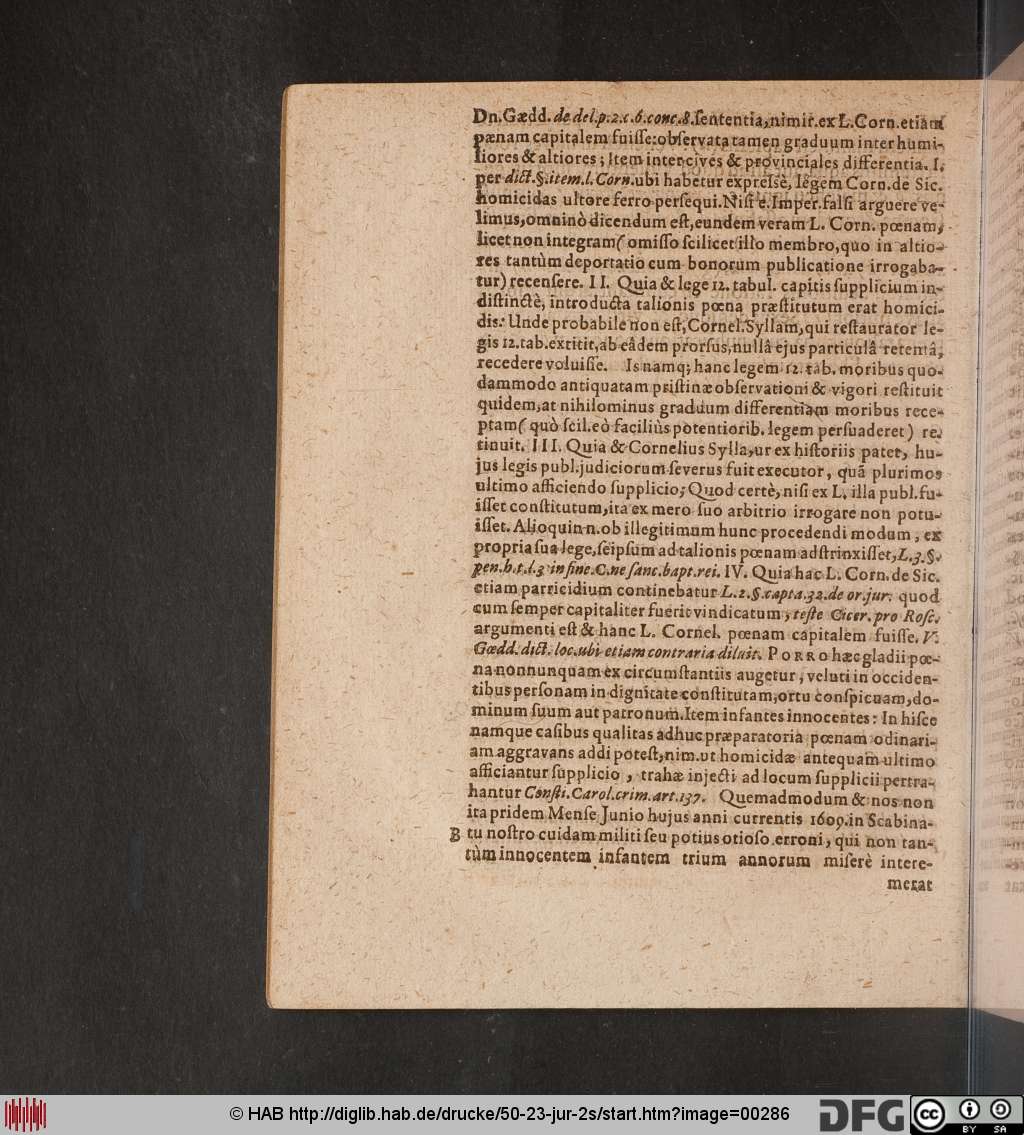 Dn. Gædd. de del. p. 2. c. 6. conc. 8. ſententia, nimir. ex L. Corn. etiam
pænam capitalem fuiſſe: obſervata tamen graduum inter humi-
liores & altiores; Item inter cives & provinciales differentia. I.
per dict. §. item. l. Corn. ubi habetur expreſsè, legem Corn. de Sic.
homicidas ultore ferro perſequi. Niſi e. Imper. falſi arguere ve-
limus, omninò dicendum eſt, eundem veram L. Corn. pœnam,
licet non integram (omiſſo ſcilicet illo membro, quo in altio-
res tantùm deportatio cum bonorum publicatione irrogaba-
tur) recenſere. II. Quia & lege 12. tabul. capitis ſupplicium in-
diſtinctè, introducta talionis pœna præſtitutum erat homici-
dis: Unde probabile non eſt, Cornel. Syllam, qui reſtaurator le-
gis 12. tab. extitit, ab eâdem prorſus, nullâ ejus particulâ retentâ,
recedere voluiſſe. Is namq; hanc legem 12. tab. moribus quo-
dammodo antiquatam priſtinæ obſervationi & vigori reſtituit
quidem, at nihilominus graduum differentiam moribus rece-
ptam (quò ſcil. eò faciliùs potentiorib. legem perſuaderet) re-
tinuit. III. Quia & Cornelius Sylla, ut ex hiſtoriis patet, hu-
jus legis publ. judiciorum ſeverus fuit executor, quâ plurimos
ultimo afficiendo ſupplicio; Quod certè, niſi ex L. illa publ. fu-
iſſet conſtitutum, ita ex mero ſuo arbitrio irrogare non potu-
iſſet. Alioquin n. ob illegitimum hunc procedendi modum, ex
propria ſua lege, ſeipſum ad talionis pœnam adſtrinxiſſet, L. 3. §.
pen. h. t. l. 3 in fine. C. ne ſanc. bapt. rei. IV. Quia hac L. Corn. de Sic.
etiam parricidium continebatur L. 2. §. capta. 32. de or. jur: quod
cum ſemper capitaliter fuerit vindicatum, teſte Cicer. pro Roſc.
argumenti eſt & hanc L. Cornel. pœnam capitalem fuiſſe. V.
Gædd. dict. loc. ubi etiam contraria diluit. PORRO hæc gladii pœ-
na nonnunquam ex circumſtantiis augetur, veluti in occiden-
tibus perſonam in dignitate conſtitutam, ortu conſpicuam, do-
minum ſuum aut patronum. Item infantes innocentes: In hiſce
namque caſibus qualitas adhuc præparatoria pœnam odinari-
am aggravans addi poteſt, nim. ut homicidæ antequam ultimo
afficiantur ſupplicio, trahæ injecti ad locum ſupplicii pertra-
hantur Conſti. Carol. crim. art. 137. Quemadmodum & nos non
ita pridem Menſe Junio hujus anni currentis 1609. in Scabina-
B tu noſtro cuidam militi ſeu potius otioſo erroni, qui non tan-
tùm innocentem infantem trium annorum miſerè intere-
merat
© HAB http://diglib.hab.de/drucke/50-23-jur-2s/start.htm?image=00286
DFG
cc BY SA